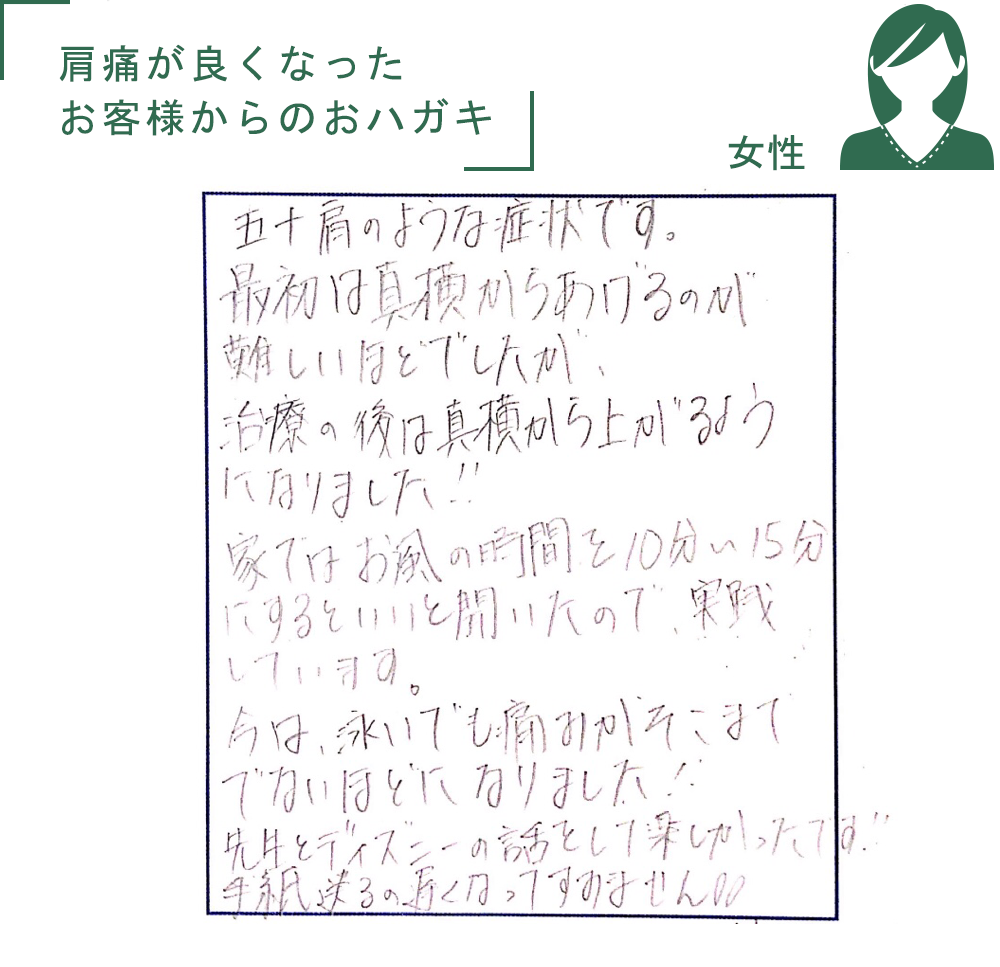 肩痛が良くなった
お客様からのおハガキ
女性
五十肩のような症状です。
最初は真横からあげるのが
難しいほどでしたが、
治療の後は真横から上がるよう
になりました!!
家ではお風の時間を10分〜15分
にするといいと聞いたので、実践
しています。
今は、泳いでも痛みがそこまで
でないほどになりました!!
先生とディズニーの話をして楽しかったです!!
手紙送るの遅くなってすみません